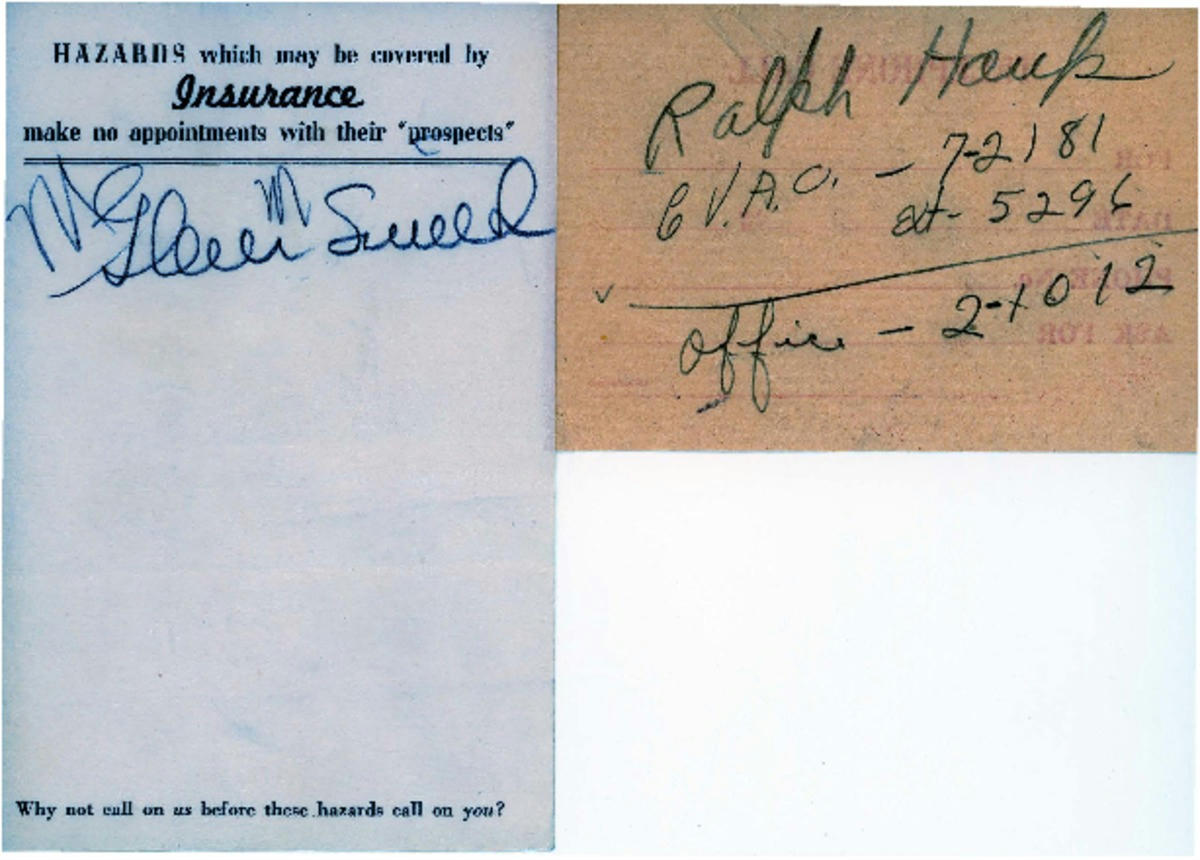 HAZARDS which may be covered by
Insurance
make no appointments with their "prospects"
Glenn M Sneed
Why not call on us before these hazards call on you?
Ralph Hauk
C.V.A.O. - 7-2181
at - 5296
office - 2-1012
FOR
DATE
PHONE No.
ASK FOR